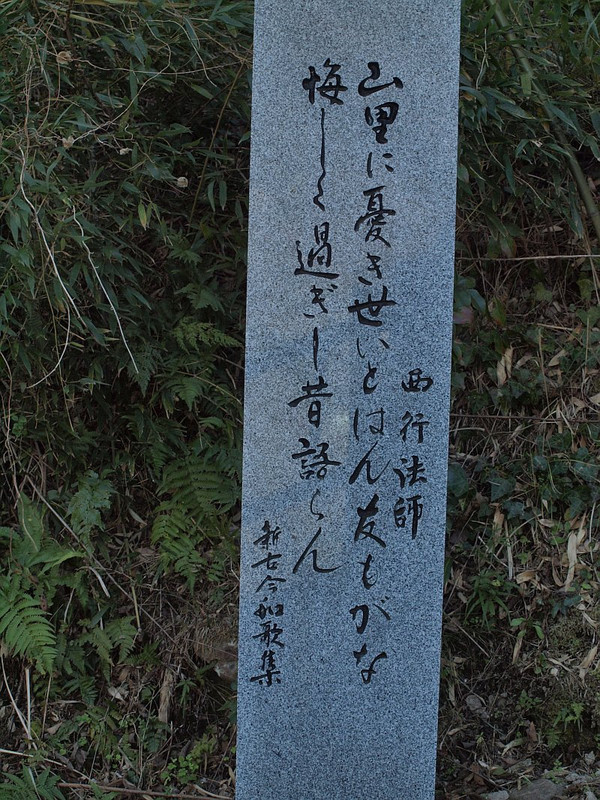 西行法師
山里に憂き世いとはん友もがな
悔しく過ぎし昔語らん
新古今和歌集